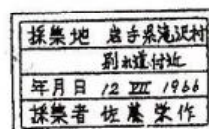 採集地 岩手県滝沢村
別水道付近
年月日 12 VII 1966
採集者 佐藤栄作